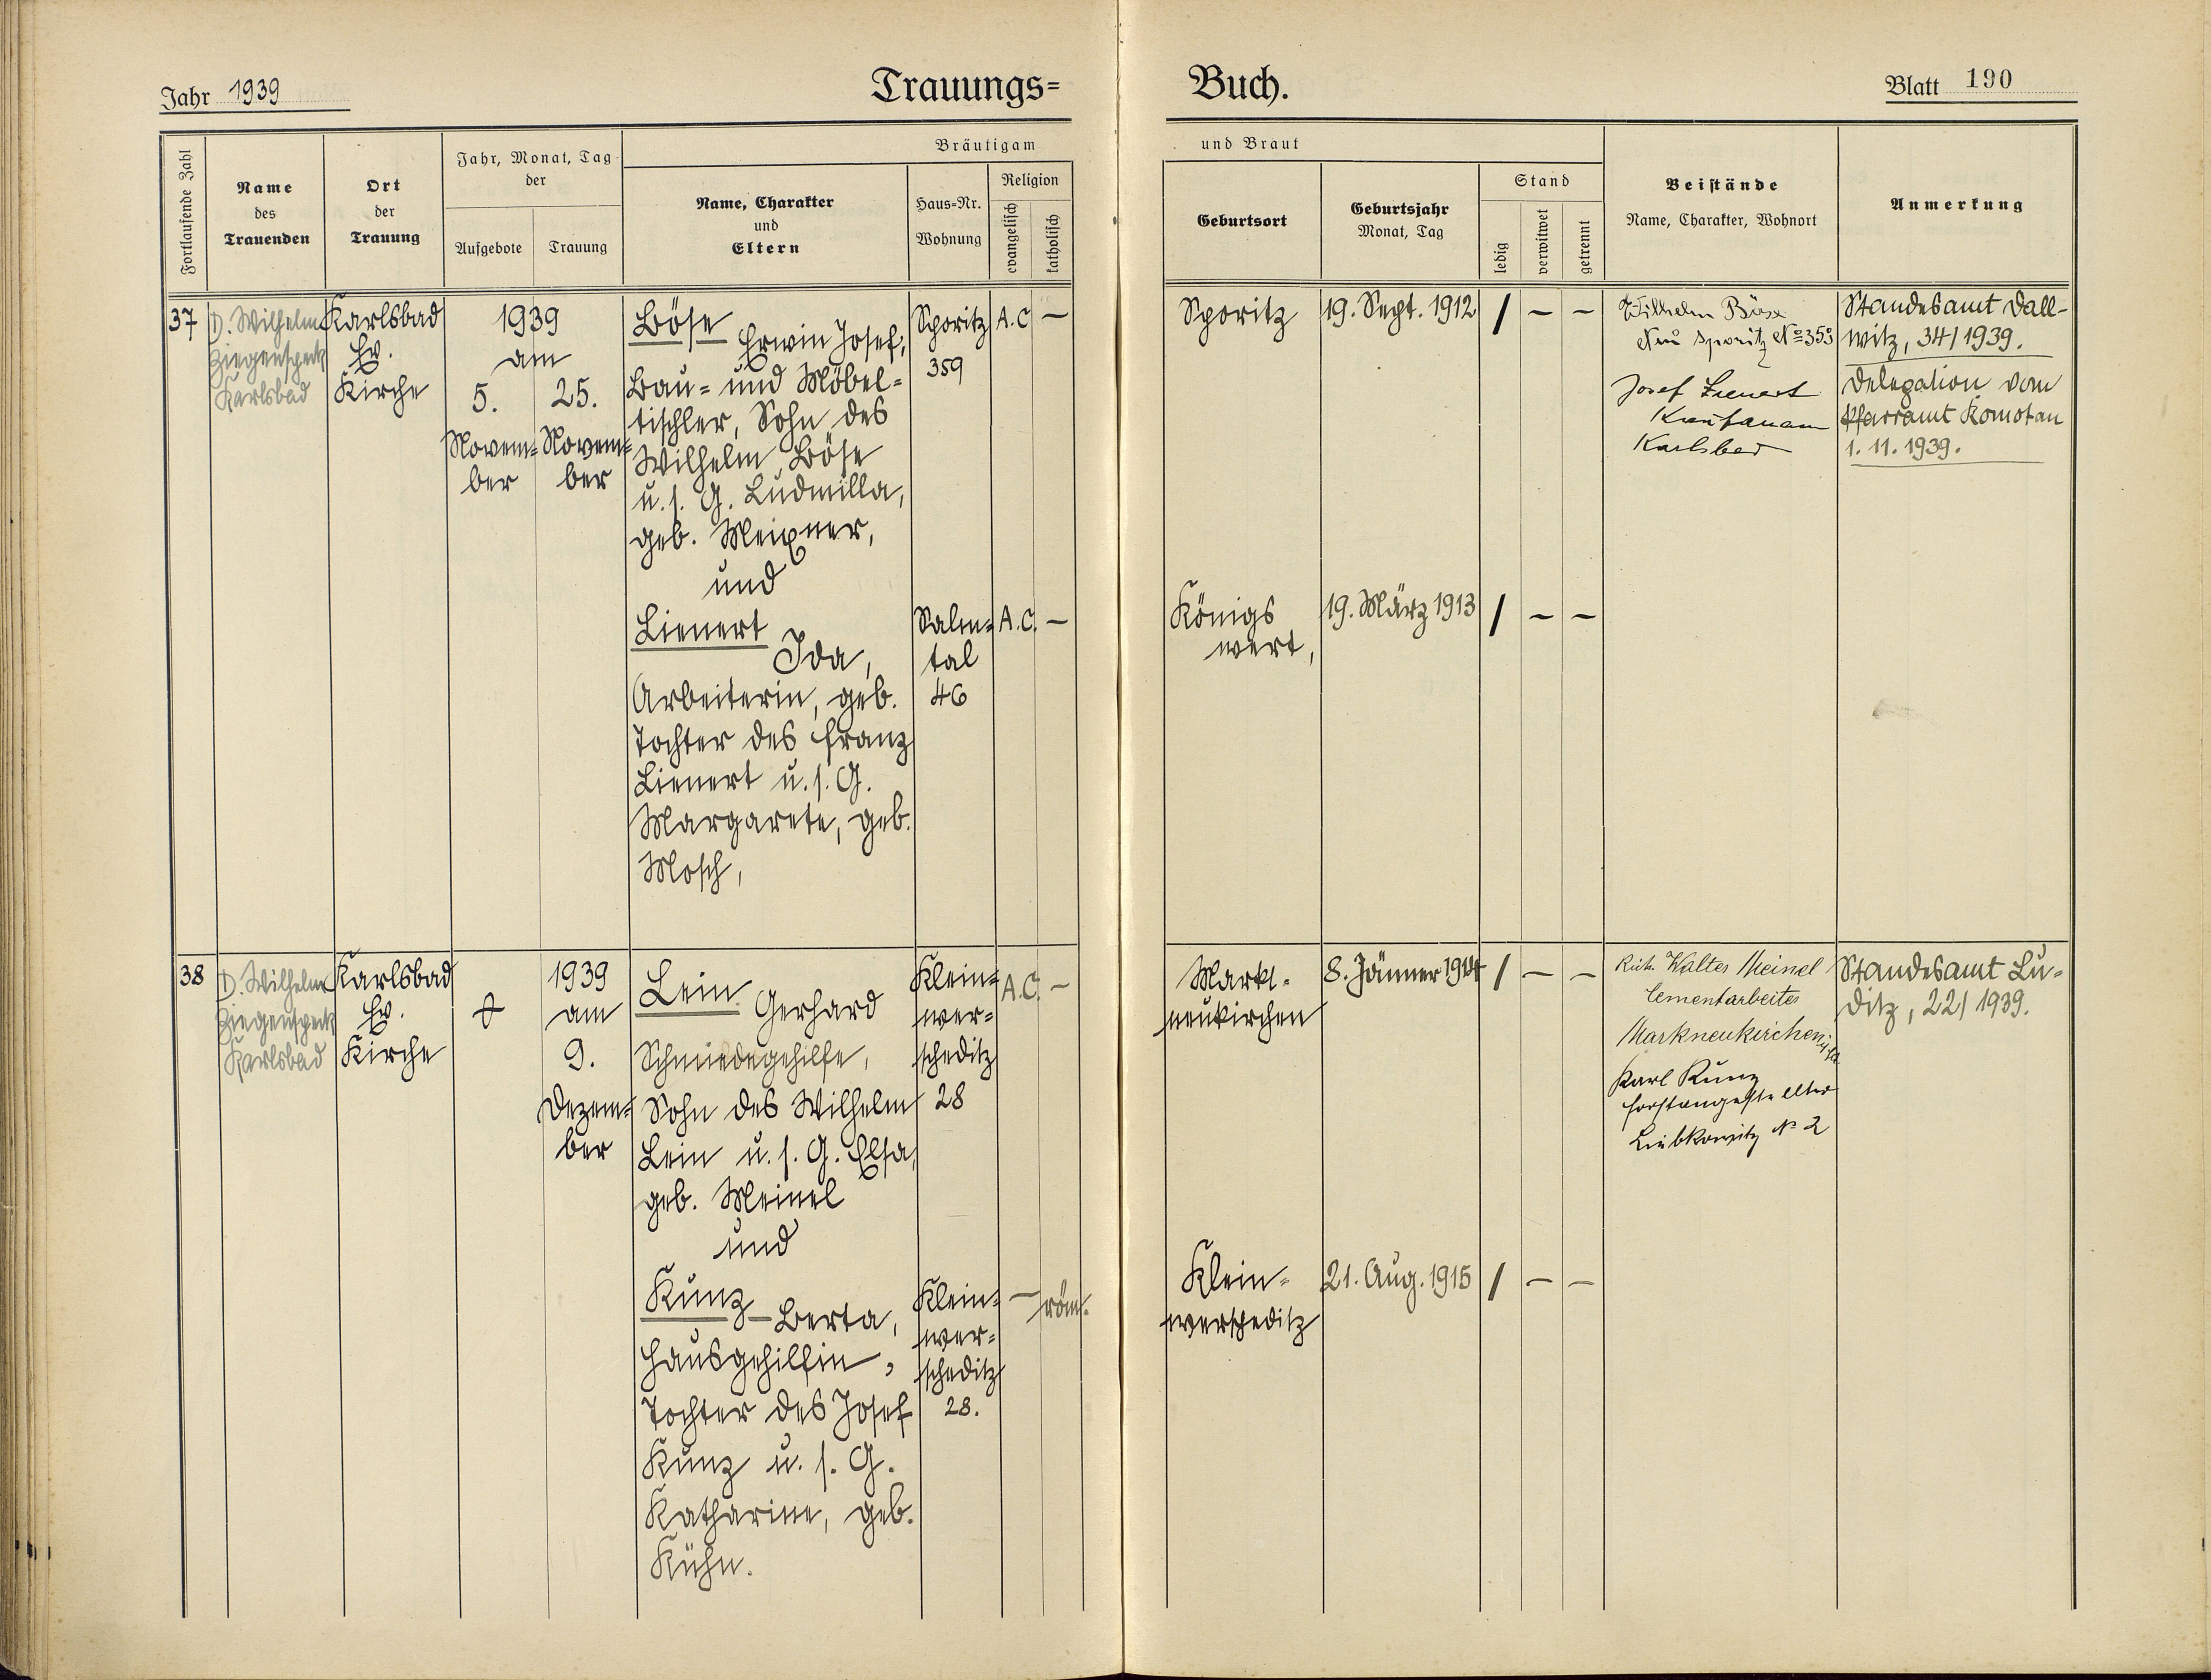 Jahr 1939
Trauungs=
Buch.
Blatt 190
Fortlaufende Zahl
Name
des
Trauenden
Ort
der
Trauung
Jahr, Monat, Tag
der
Aufgebote
Trauung
Bräutigam
Name, Charakter
und
Eltern
Haus=Nr.
Wohnung
Religion
evangelisch
katholisch
und Braut
Geburtsort
Geburtsjahr
Monat, Tag
Stand
ledig
verwitwet
getrennt
Beistände
Name, Charakter, Wohnort
Anmerkung
37
D. Wilhelm
Ziegenspeck
Karlsbad
Karlsbad
Ev.
Kirche
1939
am
5.
Novem=
ber
25.
Novem=
ber
Böse
Erwin Josef,
Bau= und Möbel=
tischler, Sohn des
Wilhelm Böse
u. s. G. Ludmilla,
geb. Meixner,
und
Lienert
Ida,
Arbeiterin, geb.
Tochter des Franz
Lienert u. s. G.
Margarete, geb.
Mosch,
Sporitz
359
A.C.
—
Salm=
tal
46
A.C.
—
Sporitz
19. Sept. 1912
/ — —
Königs
wert,
19. März 1913
/ — —
Wilhelm Böse
Neu Sporitz No 359
Josef Lienert
Kaufmann
Karlsbad
Standesamt Dall-
witz, 34/1939.
Delegation vom
Pfarramt Komotau
1. 11. 1939.
38
D. Wilhelm
Ziegenspeck
Karlsbad
Karlsbad
Ev.
Kirche
1939
am
9.
Dezem=
ber
Lein
Gerhard
Schmiedegehilfe,
Sohn des Wilhelm
Lein u. s. G. Elsa,
geb. Meinel
und
Kunz
Berta,
Hausgehilfin,
Tochter des Josef
Kunz u. s. G.
Katharine, geb.
Kühn.
Klein=
wer=
scheditz
28
A.C.
—
Klein=
wer=
scheditz
28.
—
röm.
Markt-
neukirchen
8. Jänner 1914
/ — —
Klein=
werscheditz
21. Aug. 1915
/ — —
Walter Meinel
Cementarbeiter
Markneukirchen
Karl Kunz
Forstangestellter
Liebkowitz No 2
Standesamt Lu-
ditz, 22/1939.